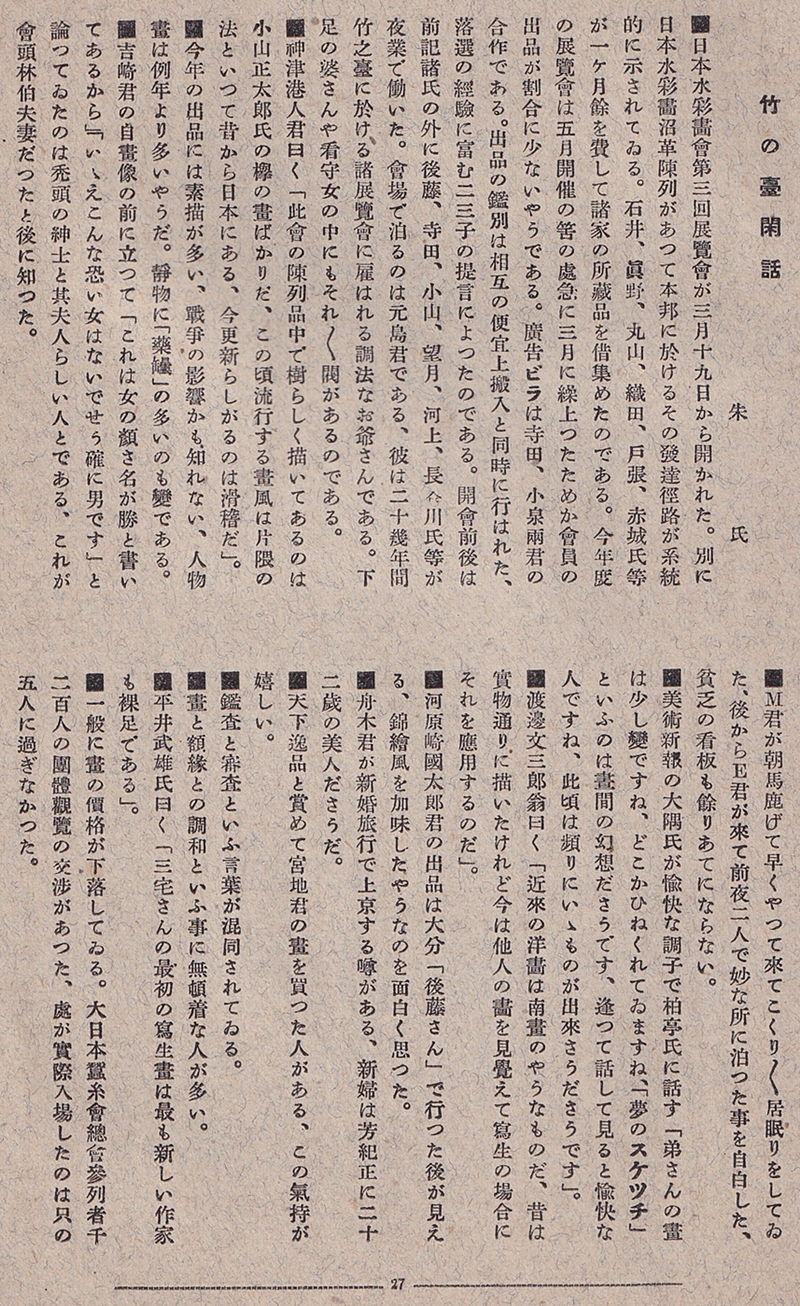 竹の臺閑話
朱氏
■日本水彩畵會第三回展覽會が三月十九日から開かれた。別に
日本水彩畵沿革陳列があつて本邦に於けるその發達徑路が系統
的に示されてゐる。石井、眞野、丸山、織田、戸張、赤城氏等
が一ケ月餘を費して諸家の所藏品を借集めたのである。今年度
の展覽會は五月開催の筈の處急に三月に繰上つたためか會員の
出品が割合に少ないやうである。廣告ビラは寺田、小泉兩君の
合作である。出品の鑑別は相互の便宜上搬入と同時に行はれた、
落選の經驗に富む二三子の提言によつたのである。開會前後は
前記諸氏の外に後藤、寺田、小山、望月、河上、長谷川氏等が
夜業で働いた。會場で泊るのは元島君である、彼は二十幾年間
竹之臺に於ける諸展覽會に雇はれる調法なお爺さんである。下
足の婆さんや看守女の中にもそれ〱閥があるのである。
■神津港人君曰く「此會の陳列品中で樹らしく描いてあるのは
小山正太郎氏の欅の畵ばかりだ、この頃流行する畵風は片隈の
法といつて昔から日本にある、今更新らしがるのは滑稽だ」。
■今年の出品には素描が多い、戰爭の影響かも知れない、人物
畵は例年より多いやうだ。靜物に「藥罐」の多いのも變である。
■吉崎君の自畵像の前に立つて「これは女の顏さ名が勝と書い
てあるから」「いゝえこんな恐い女はないでせう確に男です」と
論つてゐたのは禿頭の紳士と其夫人らしい人とである、これが
會頭林伯夫妻だつたと後に知つた。
■M君が朝馬鹿げて早くやつて來てこくり〱居眠りをしてゐ
た、後からE君が來て前夜二人で妙な所に泊つた事を自白した、
貧乏の看板も餘りあてにならない。
■美術新報の大隅氏が愉快な調子で柏亭氏に話す「弟さんの畵
は少し變ですね、どこかひねくれてゐますね、「夢のスケツチ」
といふのは晝間の幻想ださうです、逢つて話して見ると愉快な
人ですね、此頃は頻りにいゝものが出來さうださうです」。
■渡邊文三郎翁曰く「近來の洋畵は南畵のやうなものだ、昔は
實物通りに描いたけれど今は他人の畵を見覺えて寫生の場合に
それを應用するのだ」。
■河原崎國太郎君の出品は大分「後藤さん」で行つた後が見え
る、錦繪風を加味したやうなのを面白く思つた。
■舟木君が新婚旅行で上京する噂がある、新婦は芳紀正に二十
二歲の美人ださうだ。
■天下逸品と賞めて宮地君の畵を買つた人がある、この氣持が
嬉しい。
■鑑査と審査といふ言葉が混同されてゐる。
■畵と額緣との調和といふ事に無頓着な人が多い。
■平井武雄氏曰く「三宅さんの最初の寫生畵は最も新しい作家
も裸足である」。
■一般に畵の價格が下落してゐる。大日本蠶糸會總會參列者千
二百人の團體觀覽の交渉があつた、處が實際入場したのは只の
五人に過ぎなかつた。
27